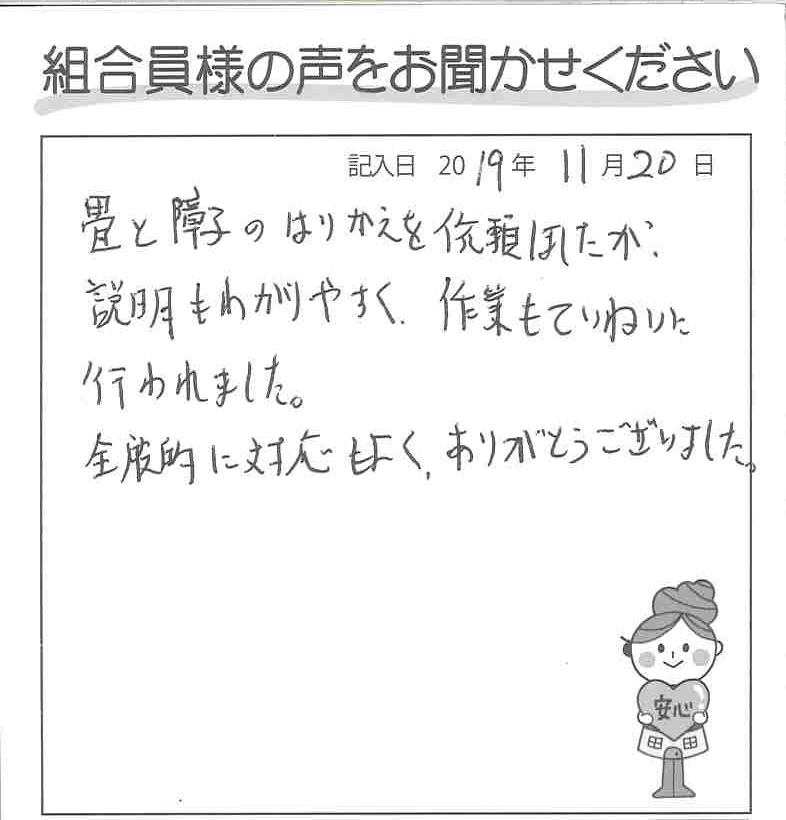 組合員様の声をお聞かせください
記入日 2019年 11月20日
畳と障子のはりかえを依頼しましたが、
説明もわかりやすく、作業もていねいに
行われました。
全般的に対応もよく、ありがとうございました。
安心